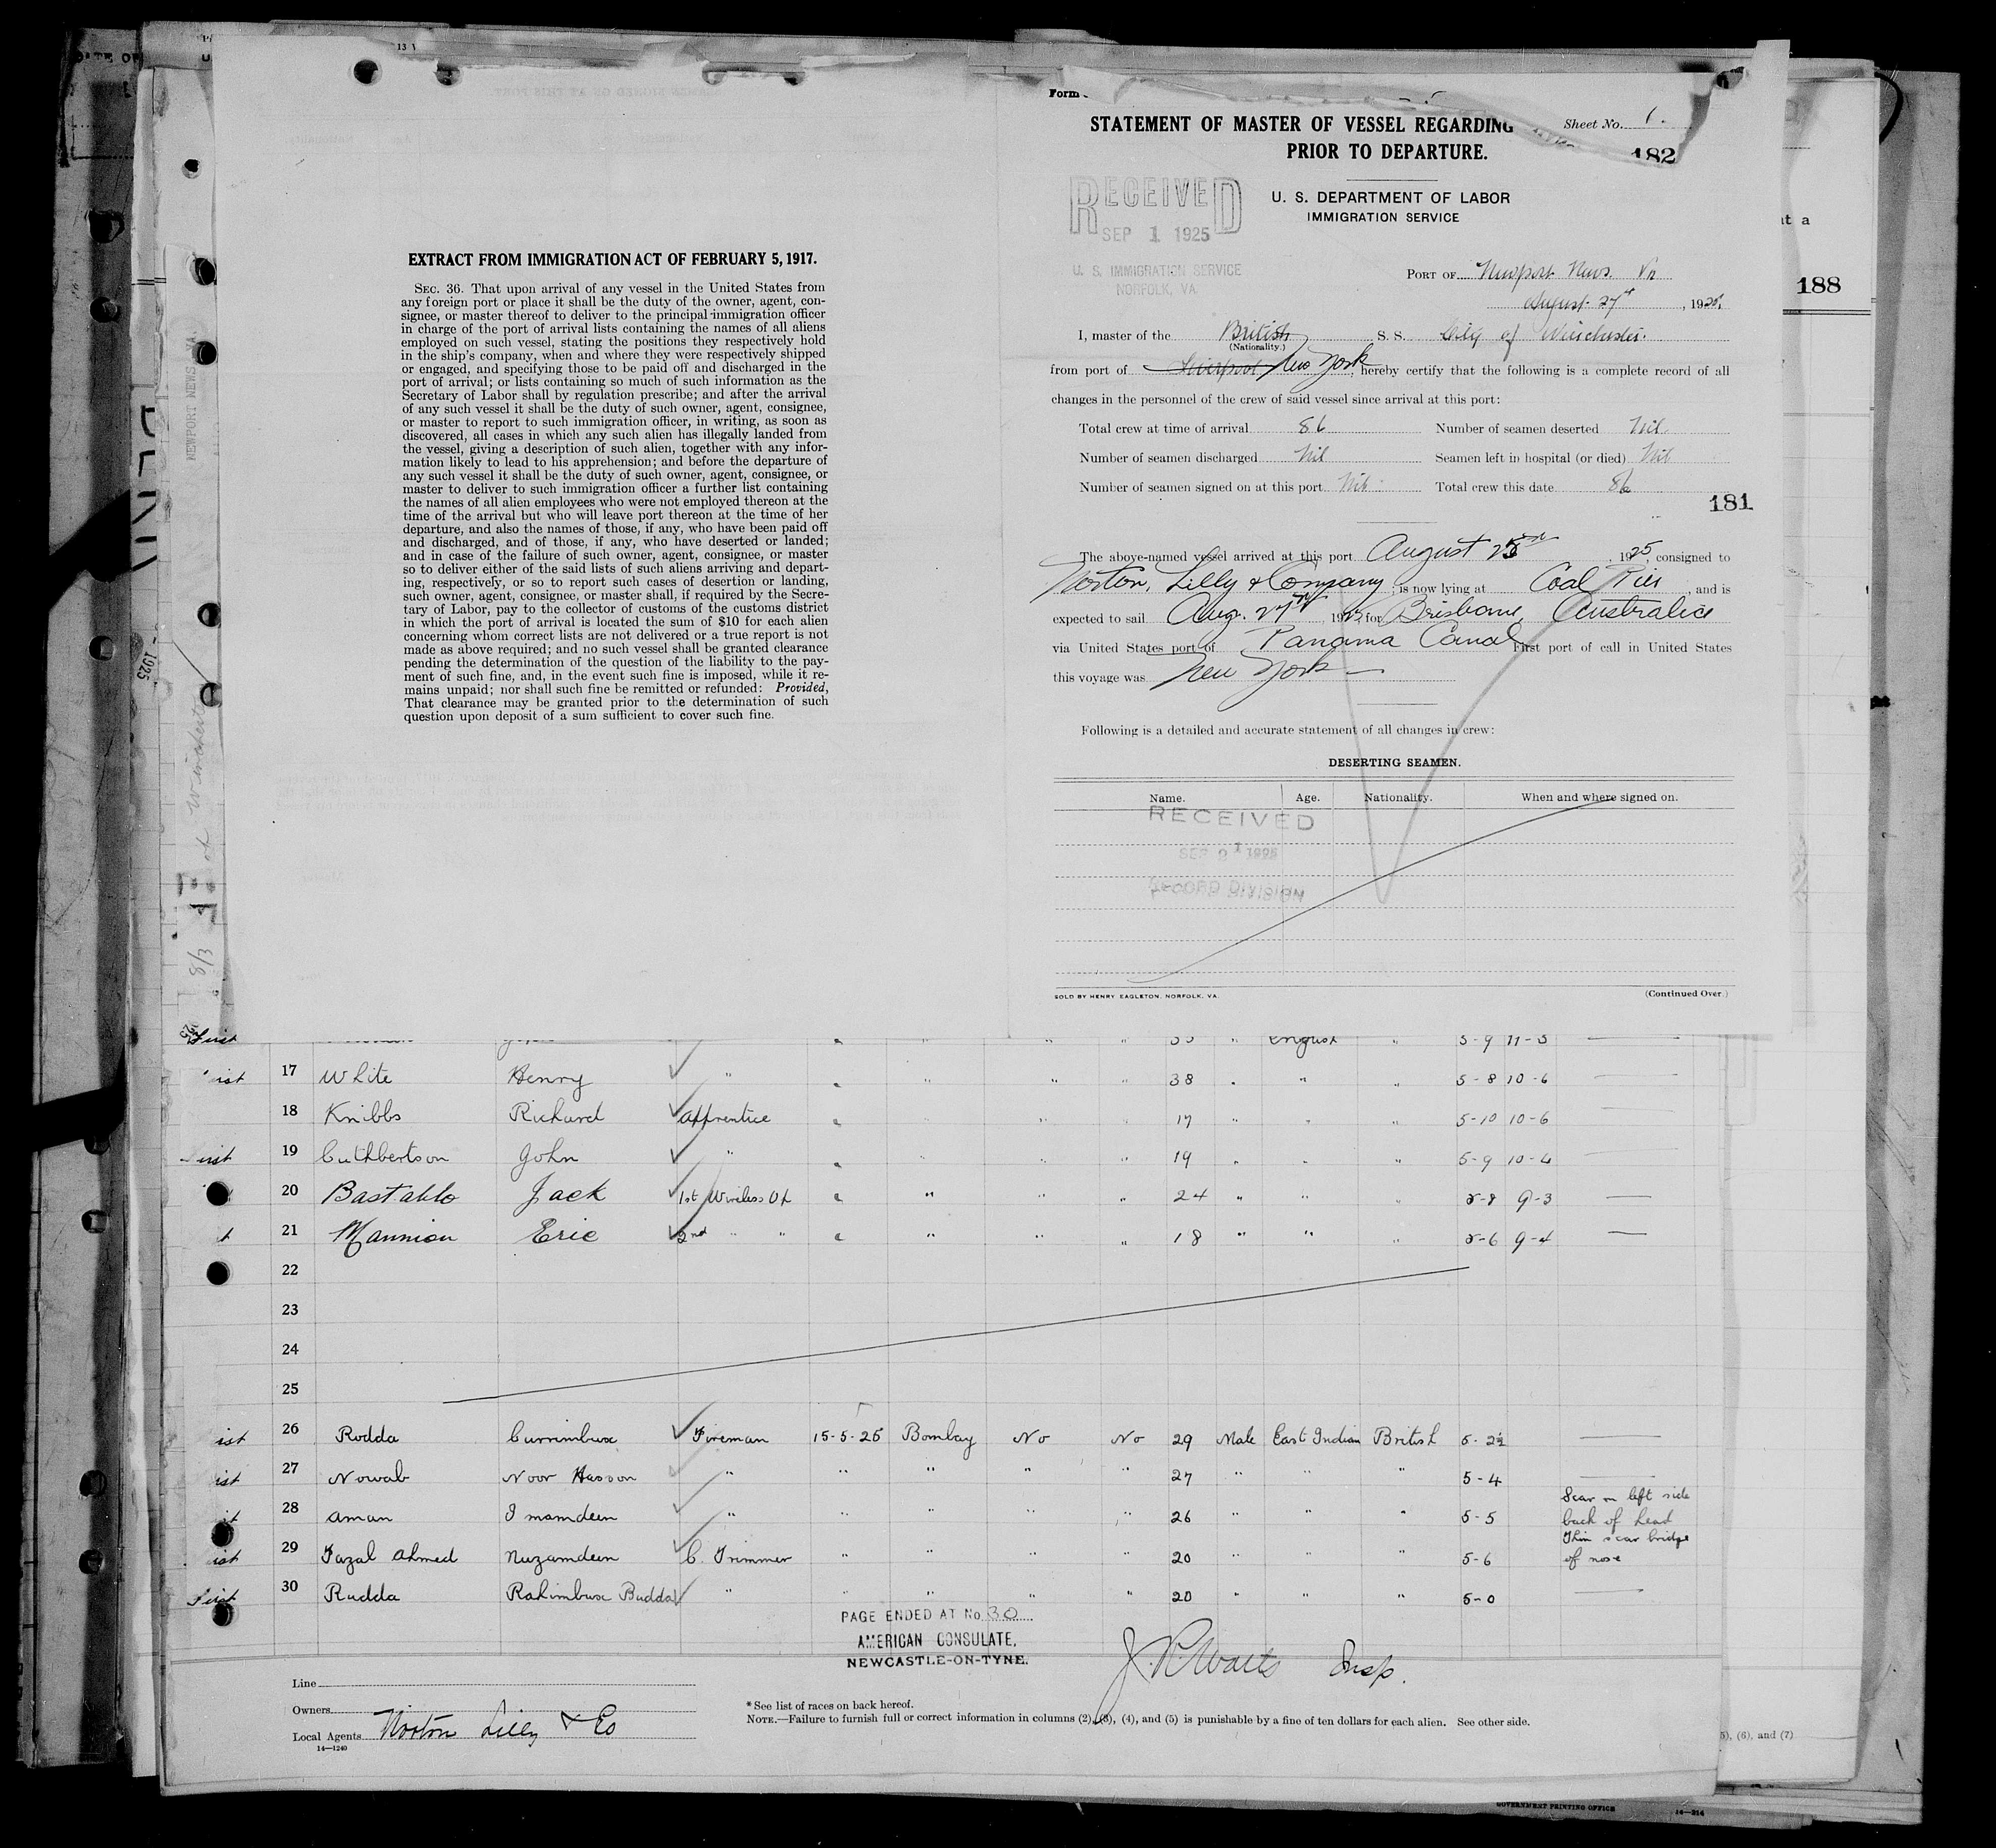 EXTRACT FROM IMMIGRATION ACT OF FEBRUARY 5, 1917.
SEC. 36. That upon arrival of any vessel in the United States from
any foreign port or place it shall be the duty of the owner, agent, con-
signee, or master thereof to deliver to the principal immigration officer
in charge of the port of arrival lists containing the names of all aliens
employed on such vessel, stating the positions they respectively hold
in the ship's company, when and where they were respectively shipped
or engaged, and specifying those to be paid off and discharged in the
port of arrival; or lists containing so much of such information as the
Secretary of Labor shall by regulation prescribe; and after the arrival
of any such vessel it shall be the duty of such owner, agent, consignee,
or master to report to such immigration officer, in writing, as soon as
discovered, all cases in which any such alien has illegally landed from
the vessel, giving a description of such alien, together with any infor-
mation likely to lead to his apprehension; and before the departure of
any such vessel it shall be the duty of such owner, agent, consignee, or
master to deliver to such immigration officer a further list containing
the names of all alien employees who were not employed thereon at the
time of the arrival but who will leave port thereon at the time of her
departure, and also the names of those, if any, who have been paid off
and discharged, and of those, if any, who have deserted or landed;
and in case of the failure of such owner, agent, consignee, or master
so to deliver either of the said lists of such aliens arriving and depart-
ing, respectively, or so to report such cases of desertion or landing,
such owner, agent, consignee, or master shall, if required by the Secre-
tary of Labor, pay to the collector of customs of the customs district
in which the port of arrival is located the sum of $10 for each alien
concerning whom correct lists are not delivered or a true report is not
made as above required; and no such vessel shall be granted clearance
pending the determination of the question of the liability to the pay-
ment of such fine, and, in the event such fine is imposed, while it re-
mains unpaid; nor shall such fine be remitted or refunded: Provided,
That clearance may be granted prior to the determination of such
question upon deposit of a sum sufficient to cover such fine.
Form
STATEMENT OF MASTER OF VESSEL REGARDING
Sheet No. 1.
PRIOR TO DEPARTURE.
182
RECEIVED
SEP 1 1925
U. S. IMMIGRATION SERVICE
NORFOLK, VA.
U. S. DEPARTMENT OF LABOR
IMMIGRATION SERVICE
PORT OF Newport News. Va
August 27th, 1925.
I, master of the British S. S. City of Winchester.
(Nationality.)
from port of Liverpool New York, hereby certify that the following is a complete record of all
changes in the personnel of the crew of said vessel since arrival at this port:
Total crew at time of arrival 86 Number of seamen deserted Nil.
Number of seamen discharged Nil Seamen left in hospital (or died) Nil
Number of seamen signed on at this port Nil Total crew this date 86
181
The above-named vessel arrived at this port August 25th, 1925, consigned to
Norton, Lilly & Company; is now lying at Coal Pier and is
expected to sail Aug. 27th, 1925, for Brisbane, Australia
via United States port of Panama Canal First port of call in United States
this voyage was New York
Following is a detailed and accurate statement of all changes in crew:
DESERTING SEAMEN.
Name. Age. Nationality. When and where signed on.
RECEIVED
SEP 21 1925
RECORD DIVISION
SOLD BY HENRY EAGLETON, NORFOLK, VA.
(Continued Over.)
188
at a
NEWPORT NEWS, VA.
1925
of Winchester
8/3
First 5-9 11-3
ist 17 White Henry " " " " " 38 " " " 5-8 10-6
18 Knibbs Richard Apprentice " " " " 17 " " " 5-10 10-6
irst 19 Cuthbertson John " " " " " 19 " " " 5-9 10-4
20 Bastable Jack 1st Wireless Op " " " " 24 " " " 5-8 9-3
t 21 Mannion Eric 2nd " " " " " " 18 " " " 5-6 9-4
22
23
24
25
ist 26 Rudda Currimbux Fireman 15-5-25 Bombay No No 29 Male East Indian British 5-2½
ist 27 Nowab Noor Hasson " " " " " 27 " " " 5-4
28 Aman Imamdeen " " " " " 26 " " " 5-5 Scar on left side back of head
ist 29 Fazal Ahmed Nuzamdeen C. Trimmer " " " " 20 " " " 5-6 Thin scar bridge of nose
First 30 Rudda Rahimbux Budda " " " " " 20 " " " 5-0
PAGE ENDED AT No. 30
AMERICAN CONSULATE,
NEWCASTLE-ON-TYNE.
Insp.
Line
Owners
Local Agents Norton Lilly & Co
14—1240
* See list of races on back hereof.
NOTE.—Failure to furnish full or correct information in columns (2), (3), (4), and (5) is punishable by a fine of ten dollars for each alien. See other side.
5), (6), and (7)
GOVERNMENT PRINTING OFFICE
14—214